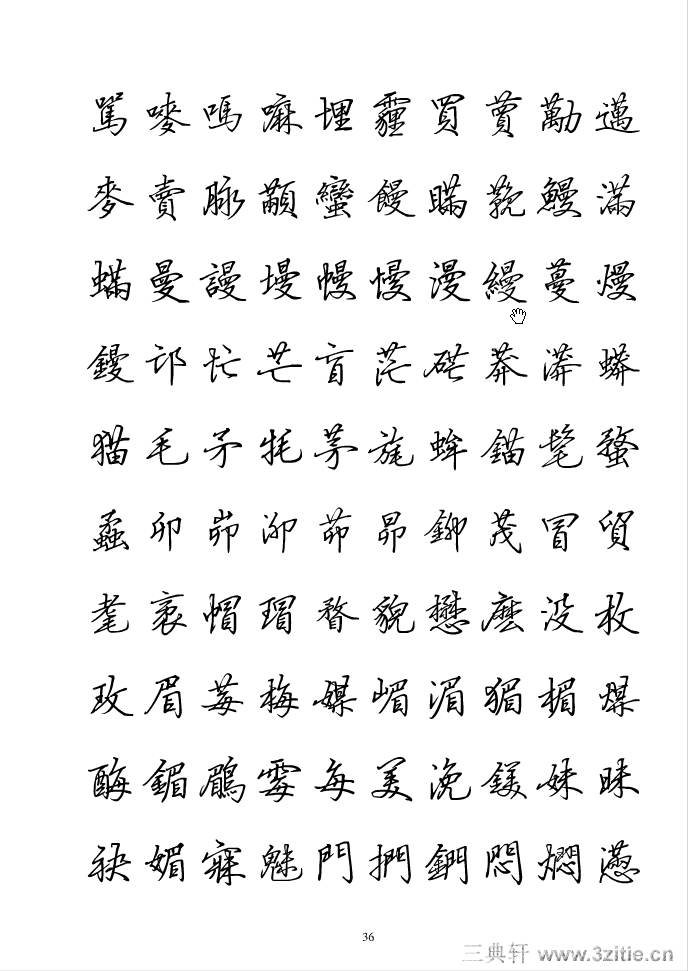 罵 嘜 嗎 嘛 埋 霾 買 蕒 勱 邁
麥 賣 脉 顢 蠻 饅 瞞 鞔 鰻 滿
蟎 曼 謾 墁 幔 慢 漫 縵 蔓 熳
鏝 邙 忙 芒 盲 茫 硭 莽 漭 蟒
猫 毛 矛 牦 茅 旄 蛑 錨 髦 蝥
蟊 卯 峁 泖 茆 昴 鉚 茂 冒 貿
耄 袤 帽 瑁 瞀 貌 懋 麽 没 枚
玫 眉 莓 梅 媒 嵋 湄 猸 楣 煤
酶 鎇 鶥 霉 每 美 浼 鎂 妹 昧
袂 媚 寐 魅 門 捫 鍆 悶 燜 懣
36
三典轩 www.3zitie.cn